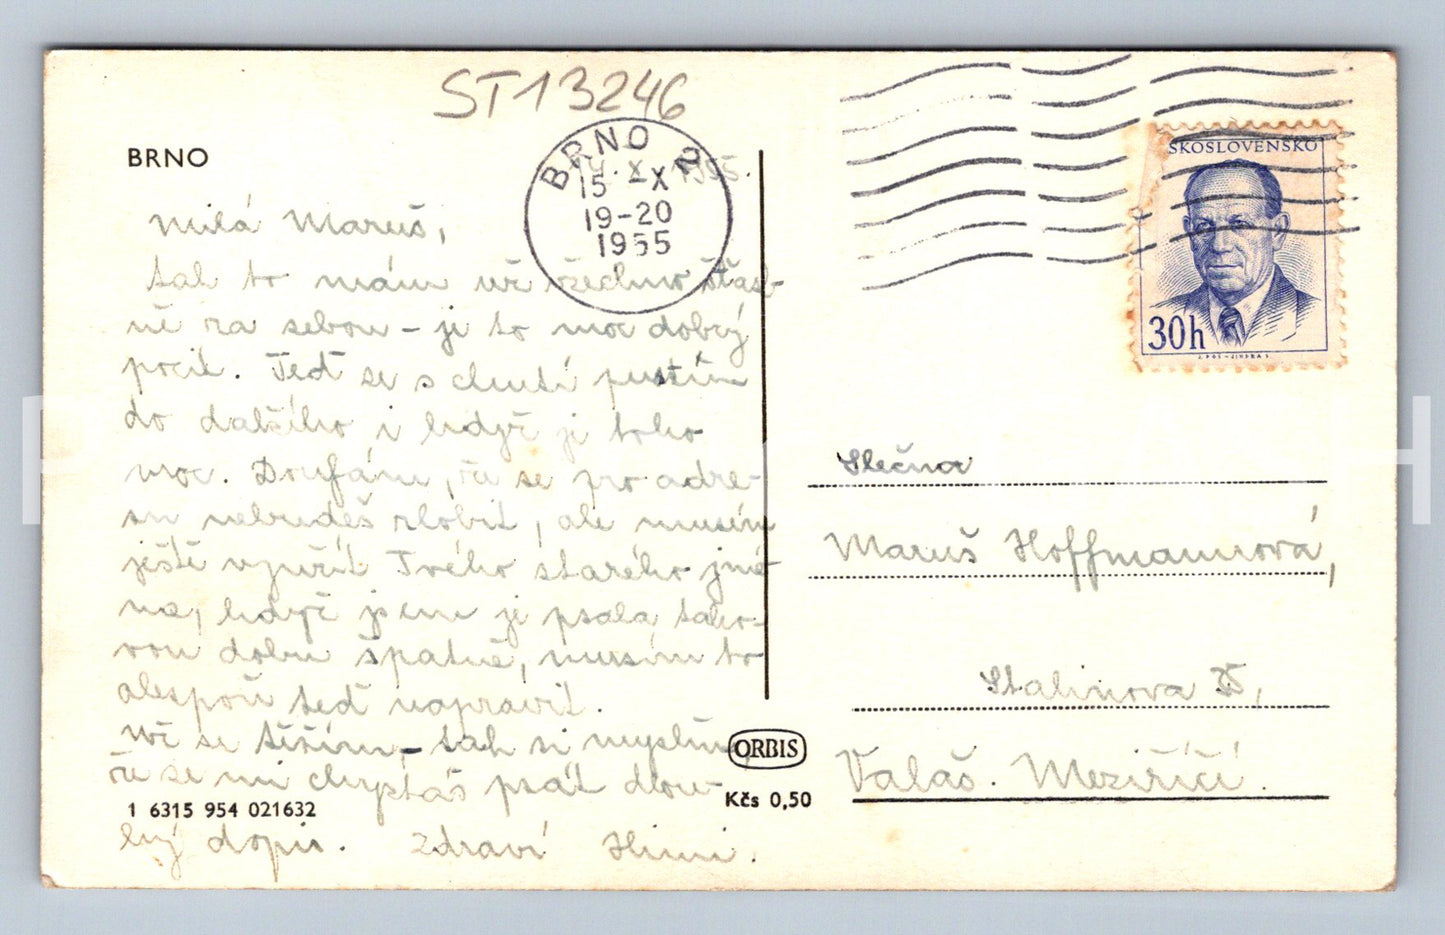 ST13246
BRNO
BRNO 2
15 -X
19-20
1955
X. 1955.
SKOSLOVENSKO
30h
Milá Maruš,
tak to mám už všechno šťast-
ně za sebou - je to moc dobrý
pocit. Teď se s chutí pustím
do dalšího i když je toho
moc. Doufám, že se pro adre-
su nebudeš zlobit, ale musím
ještě využít Tvého starého jmé-
na, když jsem je psala tako-
vou dobu špatně, musím to
alespoň teď napravit.
Už se těším, tak si myslím,
že se mi chystáš psát dlou-
hý dopis. Zdraví
ORBIS
Kčs 0,50
1 6315 954 021632
Slečna
Maruš Hoffmannová,
Stalinova
Valaš. Meziříčí.